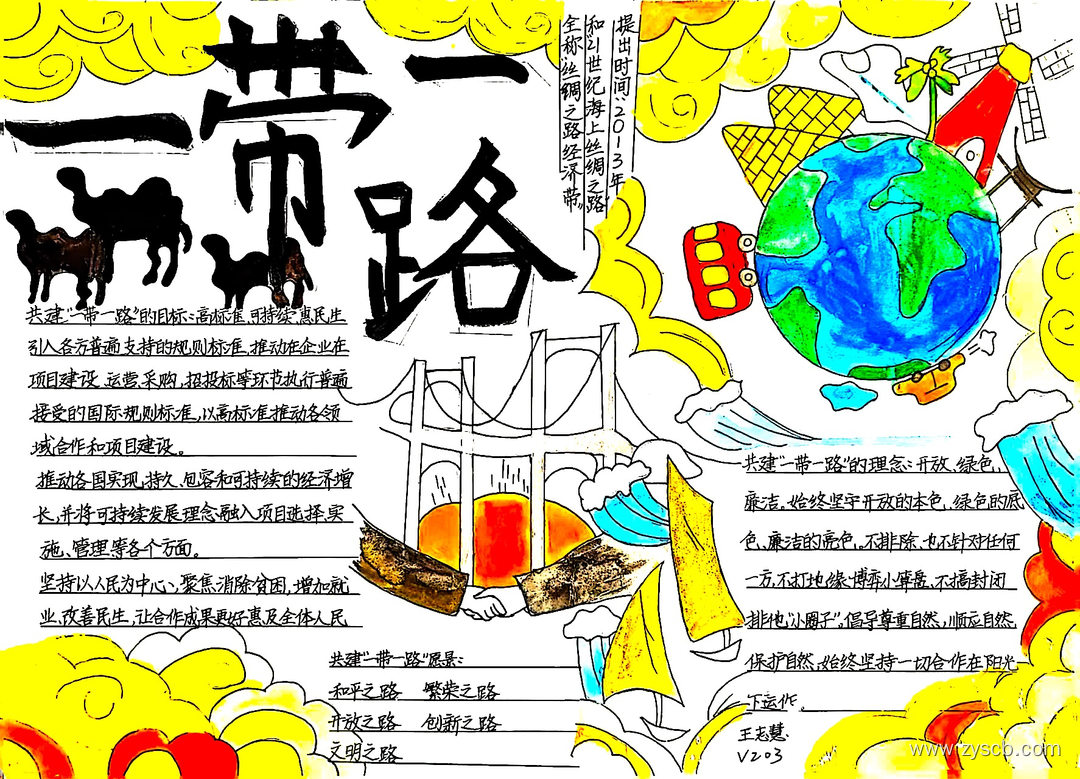 一带一路
提出时间:2013年
和21世纪海上丝绸之路
全称"丝绸之路经济带"
共建"一带一路"的目标:高标准、可持续、惠民生
引入各方普遍支持的规则标准,推动在企业在
项目建设、运营、采购、招投标等环节执行普遍
接受的国际规则标准,以高标准推动各领
域合作和项目建设。
推动各国实现持久、包容和可持续的经济增
长,并将可持续发展理念融入项目选择、实
施、管理等各个方面。
坚持以人民为中心、聚焦消除贫困,增加就
业、改善民生,让合作成果更好惠及全体人民
共建"一带一路"愿景:
和平之路 繁荣之路
开放之路 创新之路
文明之路
共建"一带一路"的理念:开放、绿色、
廉洁。始终坚守开放的本色、绿色的底
色、廉洁的亮色。不排除、也不针对任何
一方,不打地缘博弈小算盘、不搞封闭
排他"小圈子"。倡导尊重自然,顺应自然,
保护自然,始终坚持一切合作在阳光
下运作。
王志慧
V203
www.zyscb.com